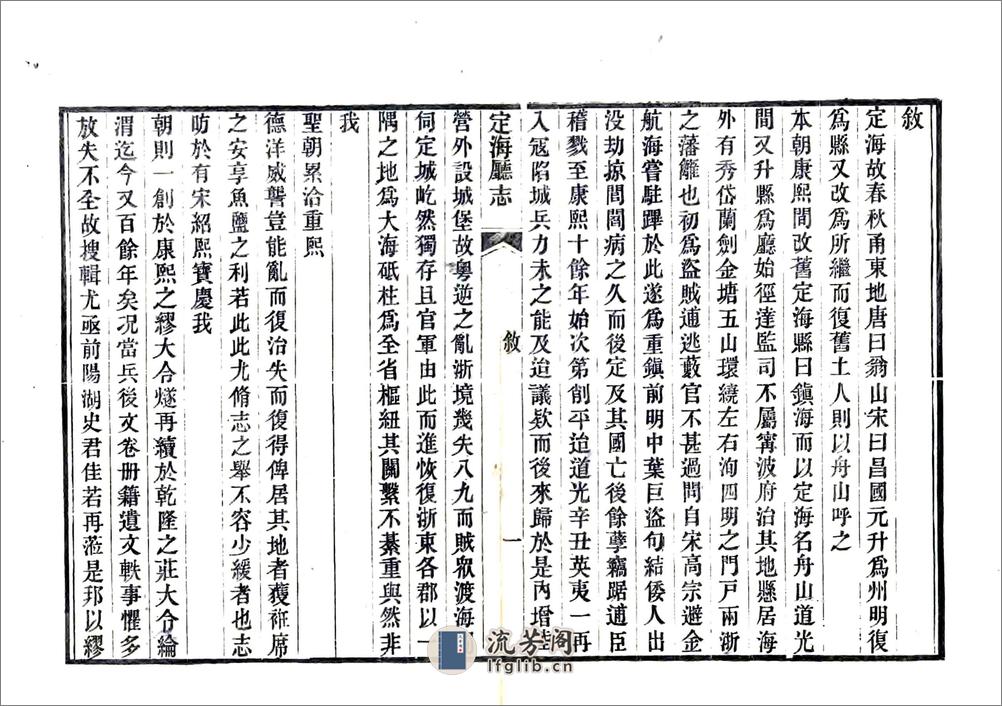 敘
定海故春秋甬東地唐曰翁山宋曰昌國元升爲州明復
爲縣又改爲所繼而復舊土人則以舟山呼之
本朝康熙間改舊定海縣曰鎭海而以定海名舟山道光
間又升縣爲廳始徑達監司不屬甯波府治其地懸居海
外有秀岱蘭劍金塘五山環繞左右洵四明之門戸兩浙
之藩籬也初爲盜賊逋逃藪官不甚過問自宋高宗避金
航海嘗駐蹕於此遂爲重鎭前明中葉巨盜句結倭人出
没劫掠閭閻病之久而後定及其國亡後餘孽竊踞逋臣
稽戮至康熙十餘年始次第削平迨道光辛丑英夷一再
入寇陷城兵力未之能及迨議欵而後來歸於是內增
定海廳志
敘
一
營外設城堡故粵逆之亂浙境幾失八九而賊眾渡海
伺定城屹然獨存且官軍由此而進恢復浙東各郡以一
隅之地爲大海砥柱爲全省樞紐其關繫不綦重與然非
我
聖朝累洽重熙
德洋威讋豈能亂而復治失而復得俾居其地者獲袵席
之安享魚鹽之利若此此尤脩志之舉不容少緩者也志
昉於有宋紹熙寶慶我
朝則一創於康熙之繆大令燧再續於乾隆之莊大令綸
渭迄今又百餘年矣况當兵後文卷册籍遺文軼事懼多
放失不全故搜輯尤亟前陽湖史君佳若再蒞是邦以繆
流芳阁
lfglib.cn